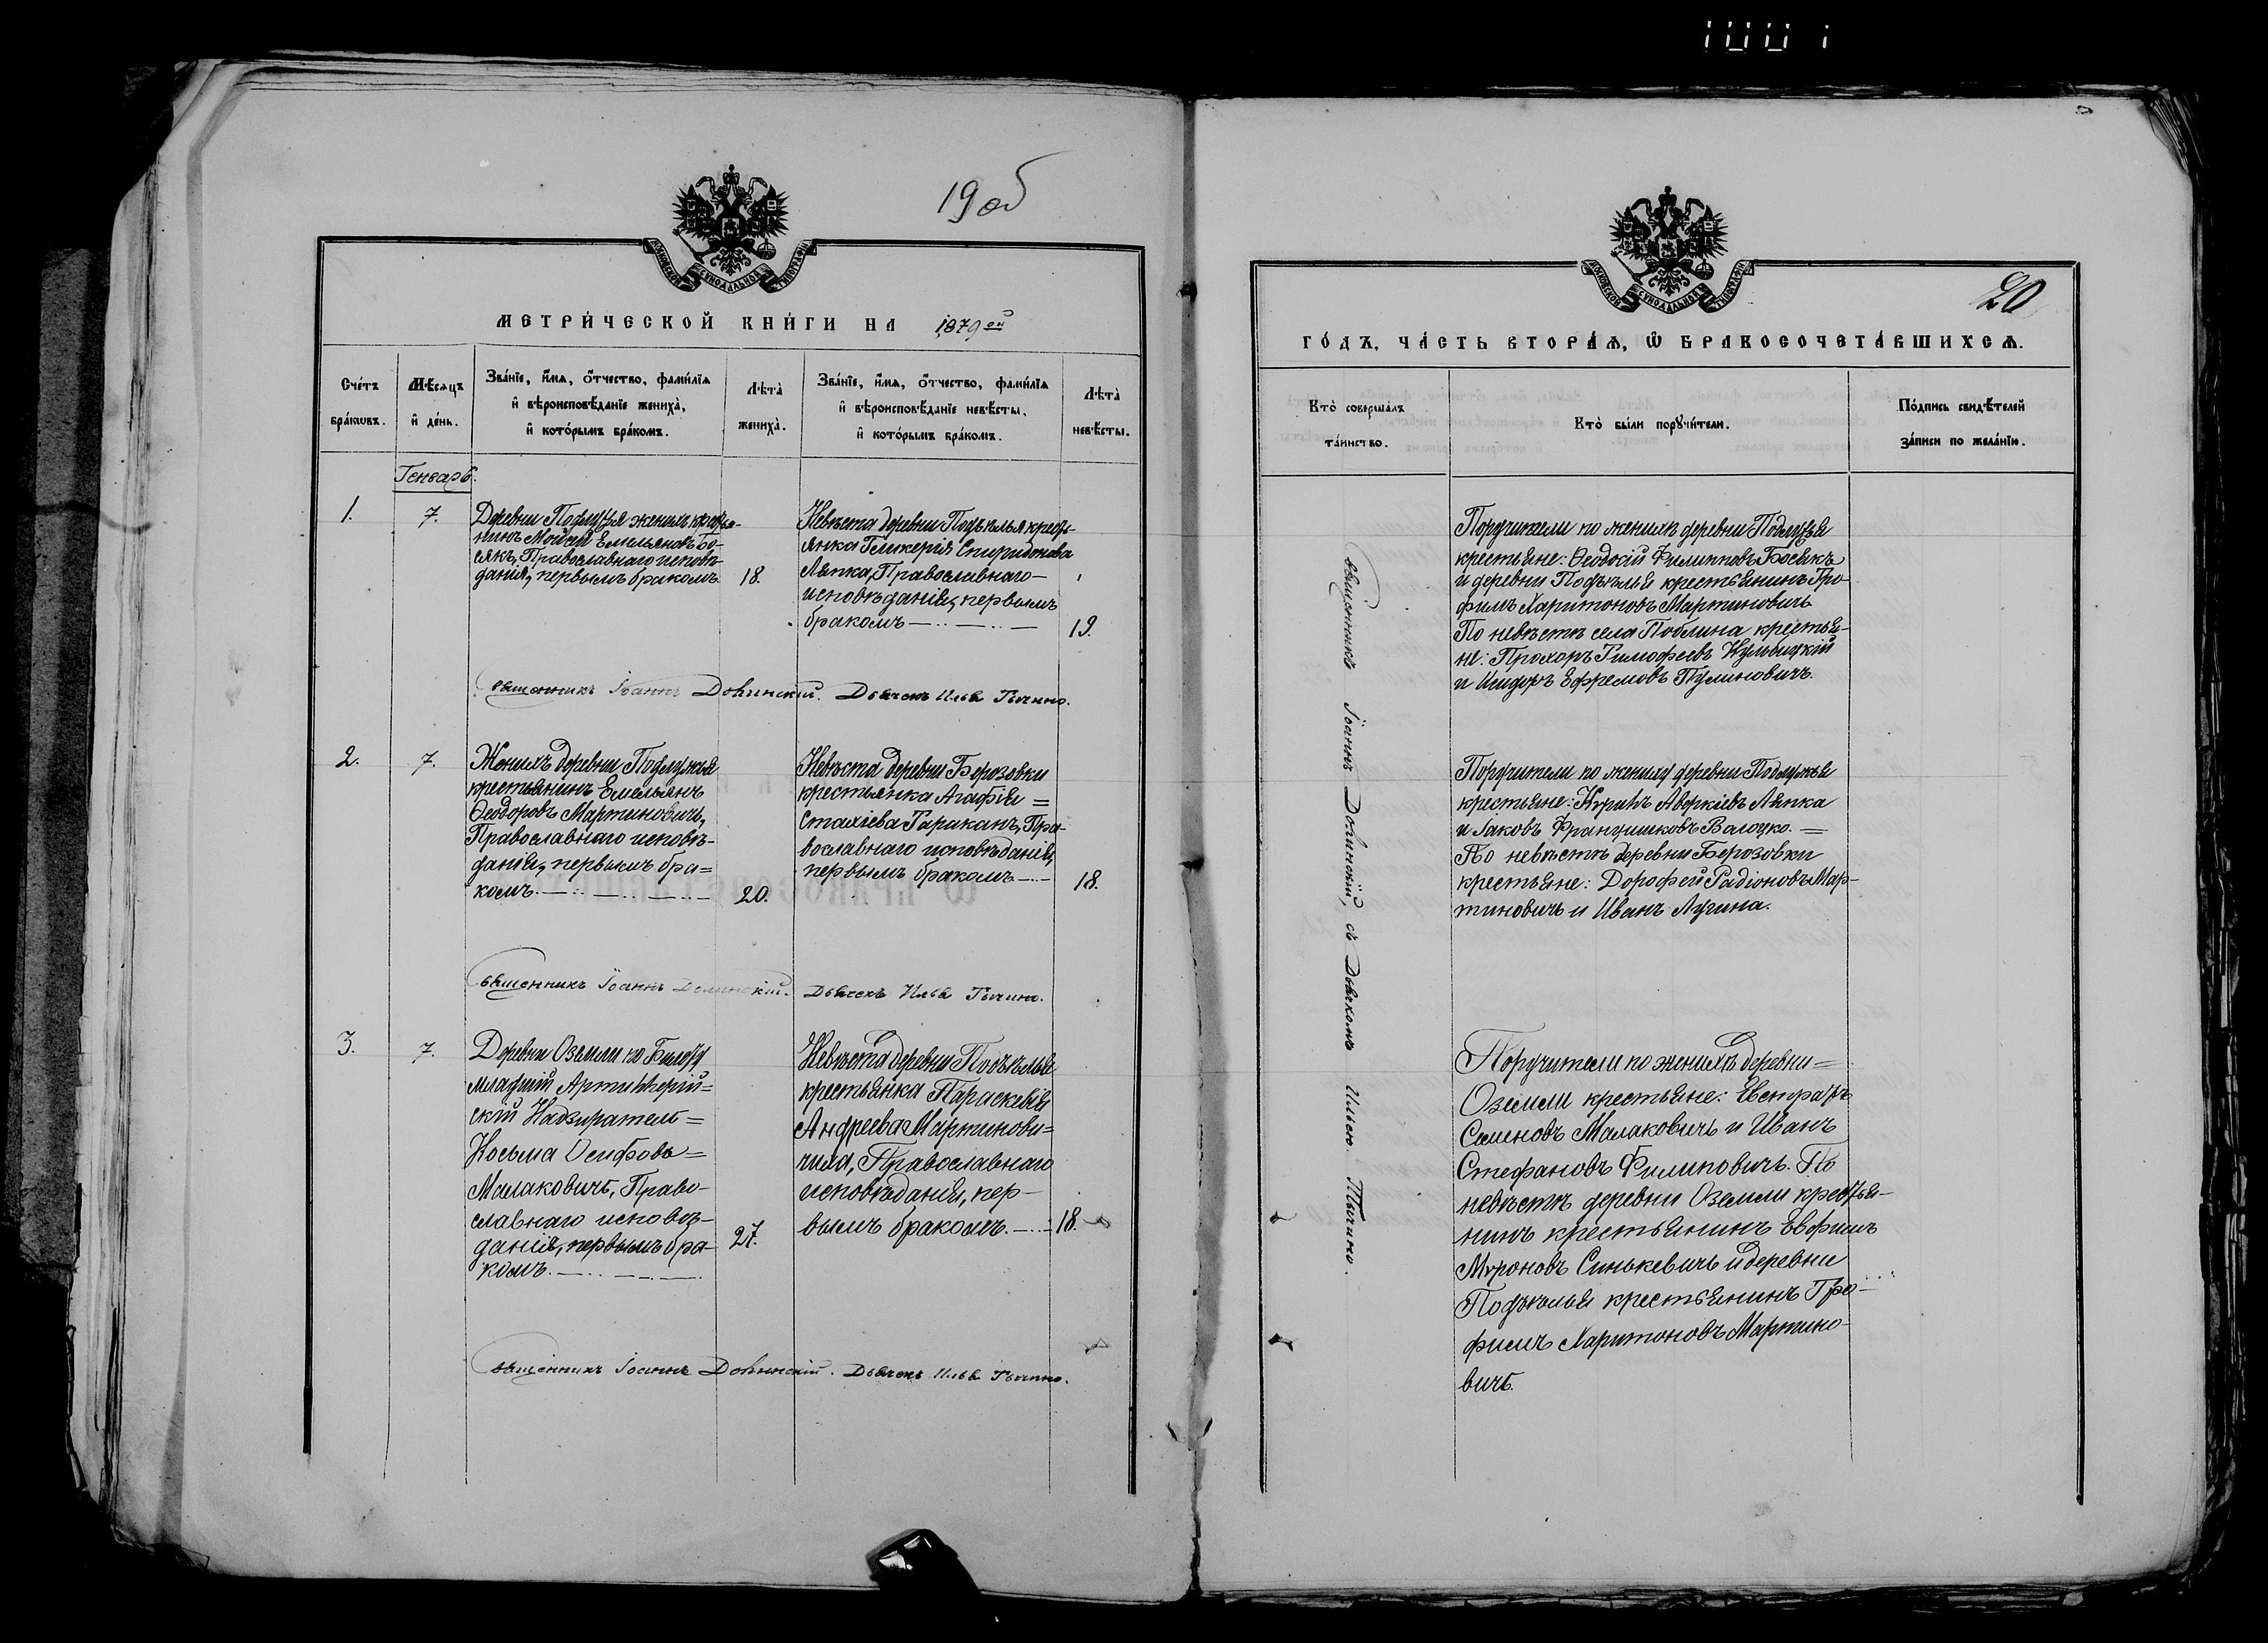 19 об
МОСКОВСКОЙ СѴНОДАЛЬНОЙ ТИПОГРАФІИ
МЕТРИ́ЧЕСКОЙ КНИ́ГИ НА 1879 ой
Сче́тъ бра́кωвъ.
Мѣсяцъ и҆ де́нь.
Зва́нїе, и҆́мѧ, ѻ҆́тчество, фами́лїѧ
и҆ вѣроисповѣ́данїе жениха̀,
и҆ кото́рымъ бра́комъ.
Лѣта̀
жениха̀.
Зва́нїе, и҆́мѧ, ѻ҆́тчество, фами́лїѧ
и҆ вѣроисповѣ́данїе невѣ́сты,
и҆ кото́рымъ бра́комъ.
Лѣта̀
невѣ́сты.
Генварь.
1.
7.
Деревни Подлужья женихъ кресть-
нинъ Мойсей Емельяновъ Бо-
сякъ, Православнаго исповѣ-
данія, первымъ бракомъ.
18.
Невѣста деревни Подъѣлья кресть-
янка Гликерія Спиридонова
Ляпка, Православнаго
исповѣданія, первымъ
бракомъ
19.
Священникъ Іоаннъ Долинскій. Дьячекъ Илья Тычино.
2.
7.
Женихъ деревни Подлужья
крестьянинъ Емельянъ
Ѳеодоровъ Мартиновичъ,
Православнаго исповѣ-
данія, первымъ бра=
комъ.
20.
Невѣста деревни Березовки
крестьянка Агафія =
Стахіева Тараканъ, Пра-
вославнаго исповѣданія,
первымъ бракомъ
18.
Священникъ Іоаннъ Долинскій. Дьячекъ Илья Тычино.
3.
7.
Деревни Оземли по Билету
младшій Артиллерій=
скій Надзиратель =
Косьма Осифовъ =
Малаковичъ, Право-
славнаго исповѣ-
данія, первымъ бра-
комъ.
27.
Невѣста деревни Подъѣлья
крестьянка Параскевія
Андреева Мартинови=
чина, Православнаго
исповѣданія, пер-
вымъ бракомъ.
18.
Священникъ Іоаннъ Долинскій. Дьячекъ Илья Тычино.
20
МОСКОВСКОЙ СѴНОДАЛЬНОЙ ТИПОГРАФІИ
ГО́ДЪ, ЧА́СТЬ ВТОРА́Ѧ, Ѽ БРАКОСОЧЕТА́ВШИХСѦ.
Кто̀ соверша́лъ
та́инство.
Кто̀ бы́ли порꙋчи́тели.
По́дпись свидѣ́телей
за́писи по жела́нїю.
Священникъ Іоаннъ Долинскій, съ Дьячкомъ Ильею Тычино.
Поручители по женихѣ деревни Подлужья
крестьяне: Ѳеодосій Филипповъ Босякъ
и деревни Подъѣлья крестьянинъ Тро-
фимъ Харитоновъ Мартиновичъ
По невѣстѣ села Поблина крестья-
не: Прохоръ Тимофеевъ Кульбицкій
и Исидоръ Ефремовъ Пулиновичъ.
Поручители по жениху деревни Подлужья
крестьяне: Кѵрилъ Аверкіевъ Ляпка
и Іаковъ Францишковъ Волочко. =
По невѣстѣ деревни Березовки
крестьяне: Дорофей Радіоновъ Мар-
тиновичъ и Иванъ Лучина.
Поручители по женихѣ деревни =
Оземли крестьяне: Евстратъ
Семеновъ Малаковичъ и Иванъ
Стефановъ Филиповичъ. По
невѣстѣ деревни Оземли крестья-
нинъ крестьянинъ Евфимъ
Мѵроновъ Синькевичъ и деревни
Подъѣлья крестьянинъ Тро-
фимъ Харитоновъ Мартино-
вичъ.